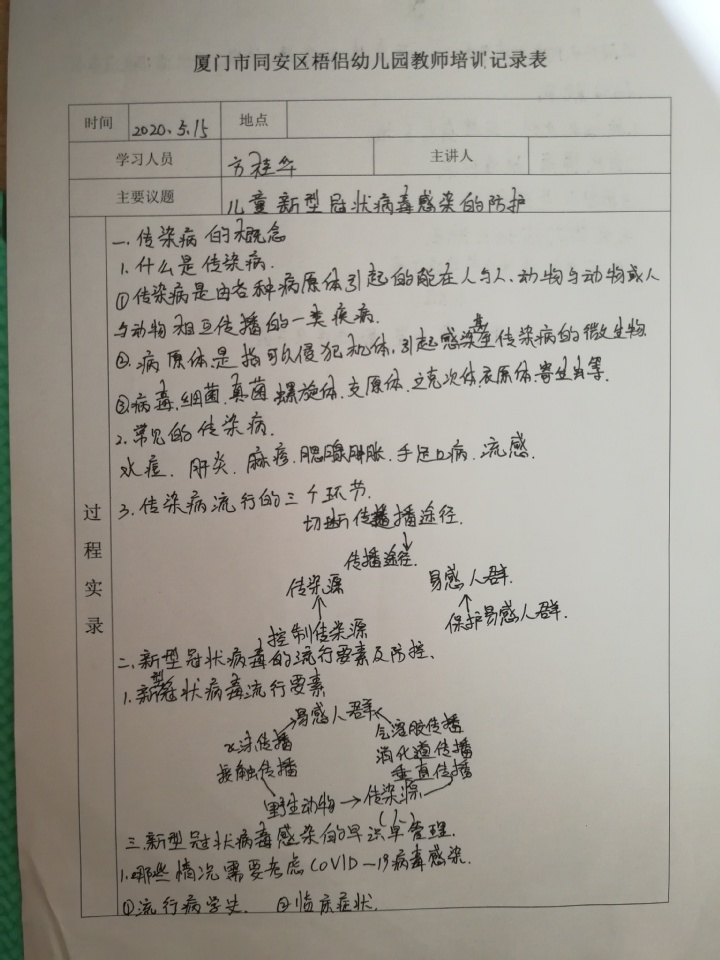 厦门市同安区梧侣幼儿园教师培训记录表
时间 2020.5.15 地点
学习人员 方桂华 主讲人
主要议题 儿童新型冠状病毒感染的防护
过程实录
一.传染病的概念
1.什么是传染病.
①传染病是由各种病原体引起的能在人与人、动物与动物或人
与动物相互传播的一类疾病.
②.病原体.是指可以侵犯机体,引起感染甚至传染病的微生物
③病毒.细菌.真菌.螺旋体.支原体.立克次体.衣原体.寄生虫等.
2.常见的传染病.
水痘. 肝炎. 麻疹. 腮腺肿胀. 手足口病. 流感.
3.传染病流行的三个环节.
切断传播途径.
↓
传播途径.
传染源 易感人群.
↑ ↑
控制传染源 保护易感人群.
二.新型冠状病毒的流行要素及防控.
1.新型冠状病毒流行要素
易感人群
飞沫传播 气溶胶传播
接触传播 消化道传播
垂直传播
野生动物→传染源
(人)
三.新型冠状病毒感染的早识早管理.
1.哪些情况需要考虑COVID-19病毒感染.
①流行病学史. ②临床症状.